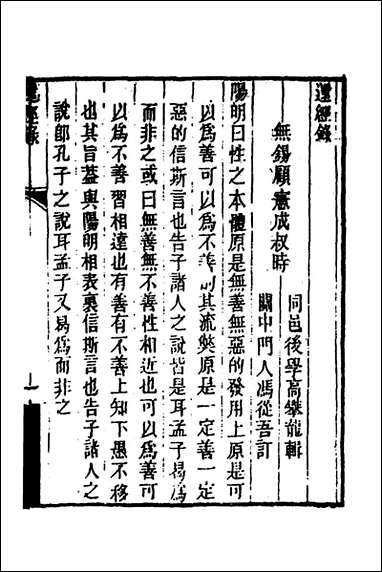 還經錄
無錫顧憲成叔時
同邑後學高攀龍輯
關中門人馮從吾訂
陽明曰性之本體原是無善無惡的發用上原是可
以爲善可以爲不善則其流獘原是一定善一定
惡的信斯言也告子諸人之說皆是耳孟子曷爲
而非之或曰無善無不善性相近也可以爲善可
以爲不善習相遠也有善有不善上知下愚不移
也其旨蓋與陽明相表裏信斯言也告子諸人之
說郎孔子之說耳孟子又曷爲而非之
還經錄
一